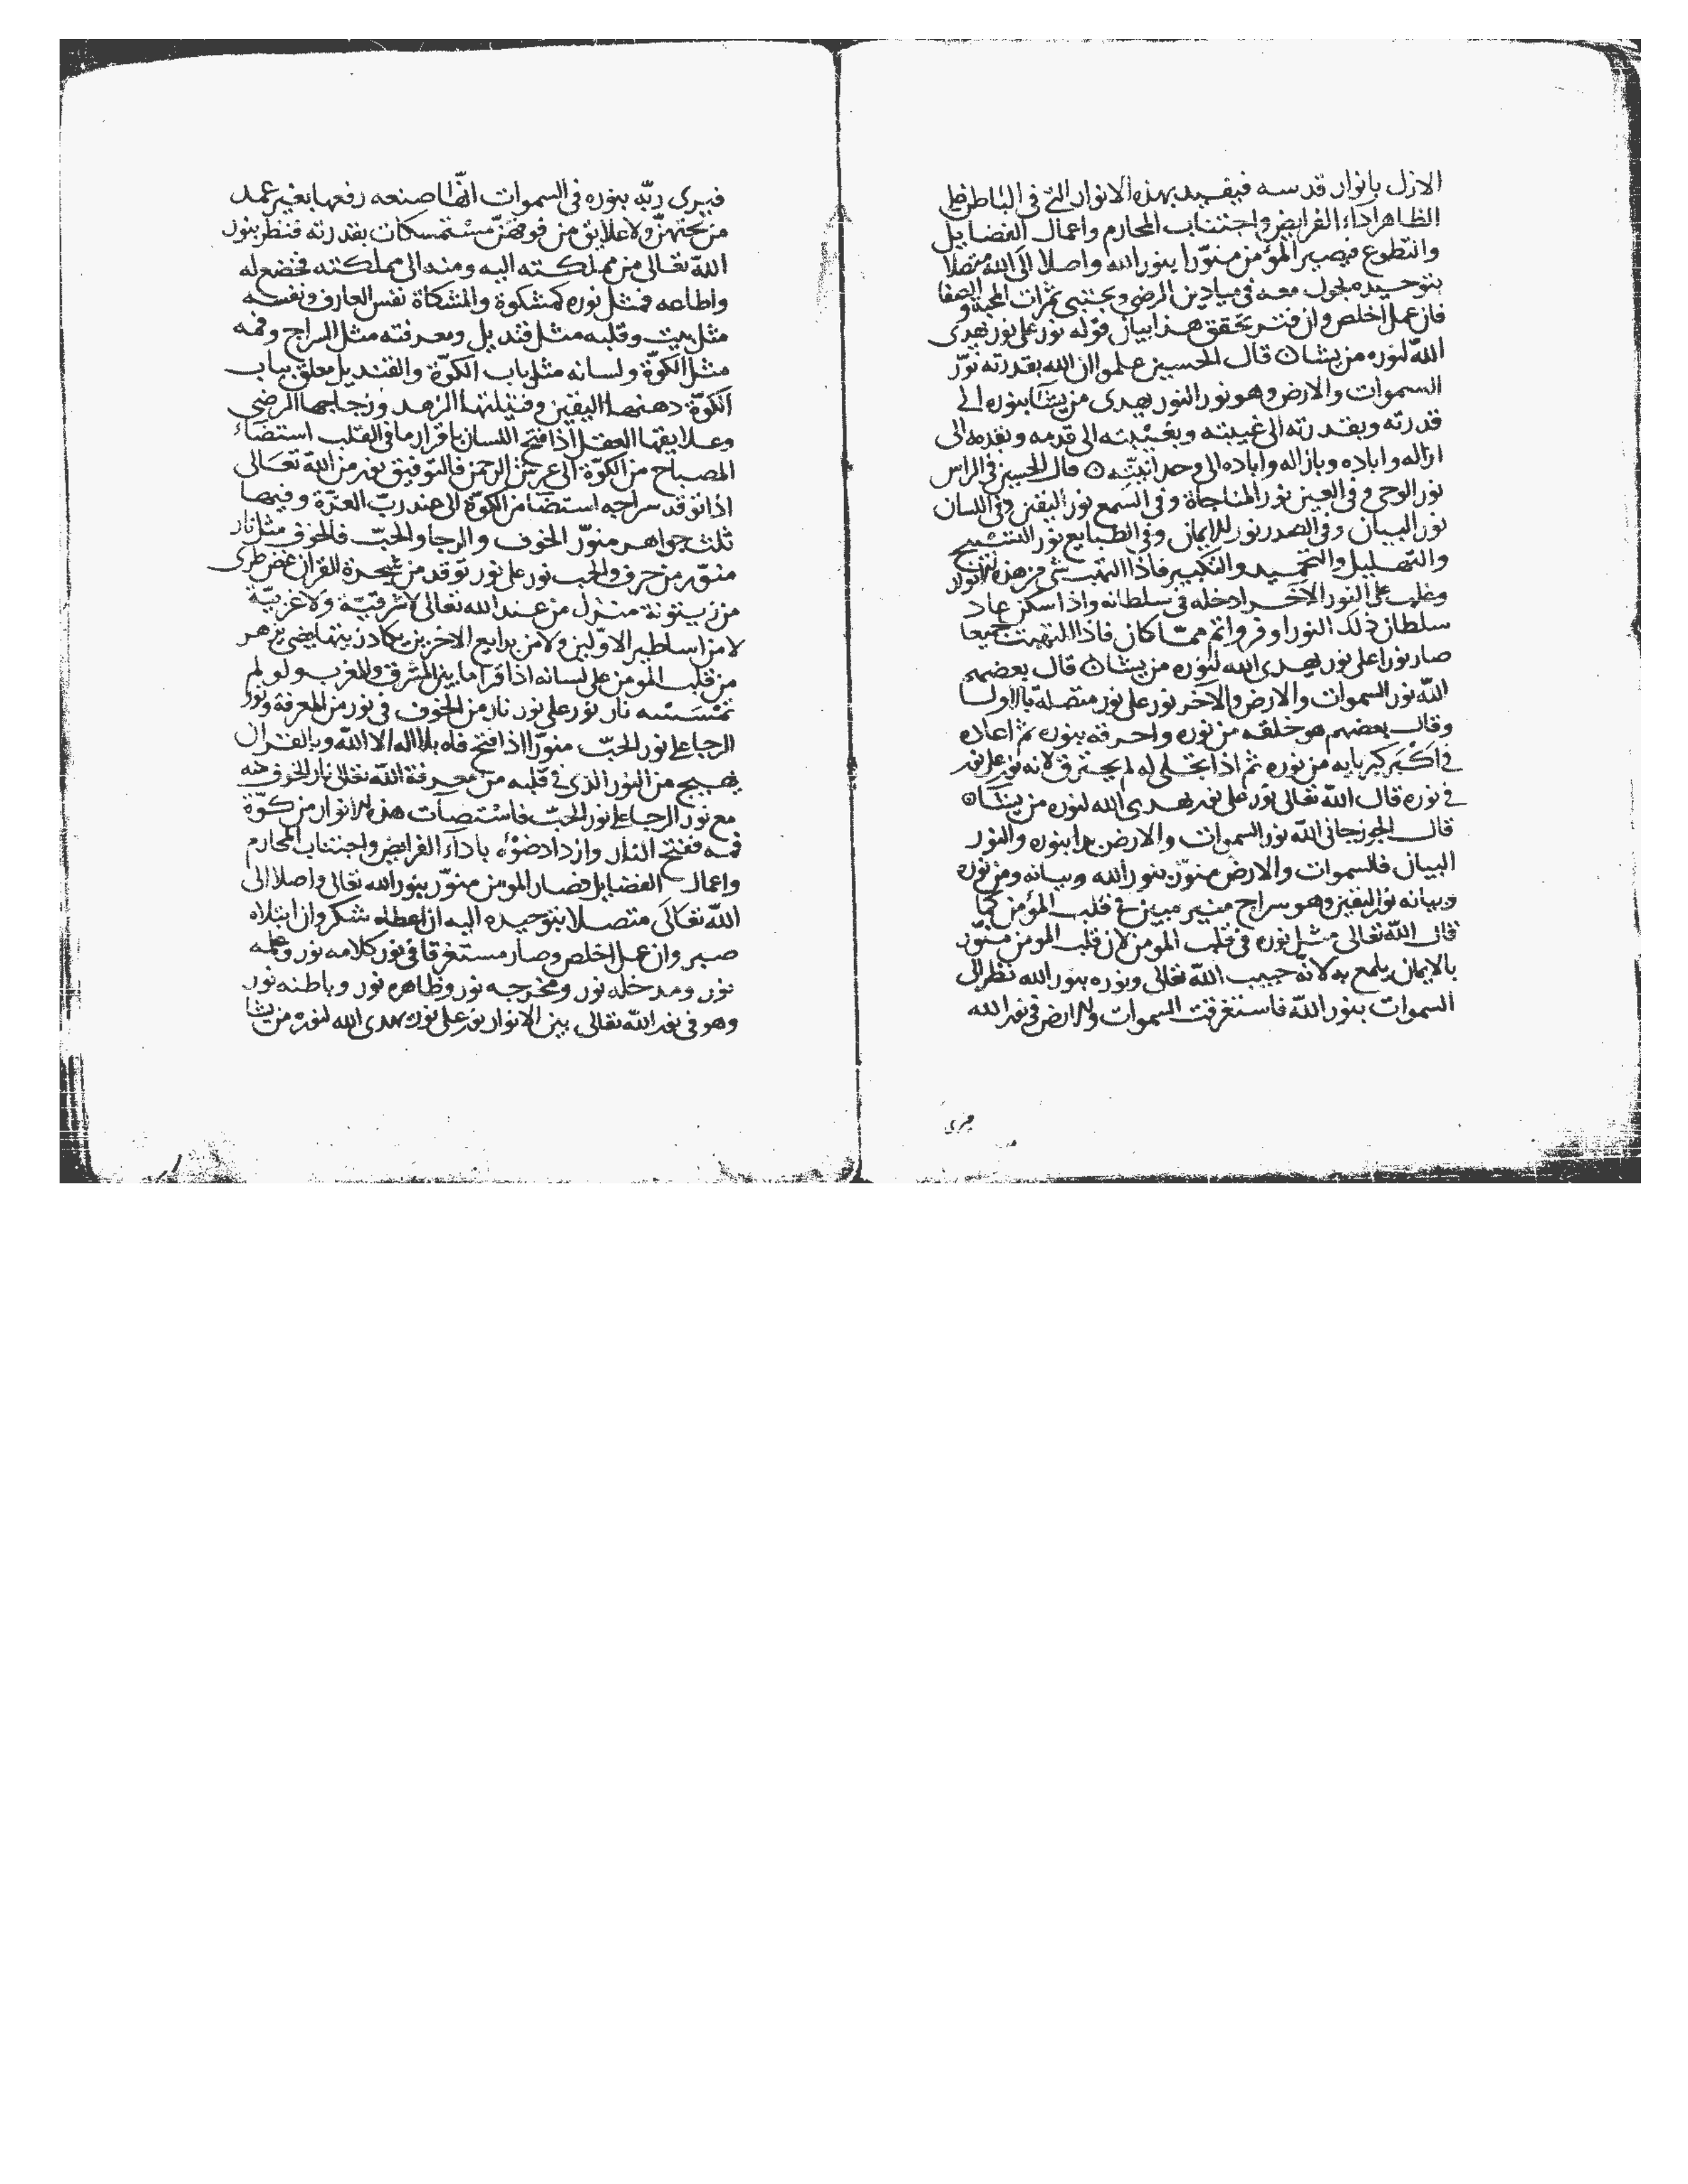 الازل بانوار قدسه فيفيد بهذه الانوار التى فى الباطن على
الظاهر اداء الفرايض واجتناب المحارم واعمال الفضايل
وانتطوع فيصير المؤمن منوّرا بنور الله واصلا الى الله متصلا
بتوحيده يجول معه فى ميادين الرضى ويجتنى ثمرات المحبة والصفا
فان عمل اخلص وان فتر تحقق هذا بيان قوله نور على نور يهدى
الله لنوره من يشا ن قال الحسين علموا ان الله بقدرته نوّر
السموات والارض وهو نور النور يهدى من يشآ بنوره الى
قدرته وبقدرته الى غيبته وبغيبته الى قدمه وبقدمه الى
ازاله واباده وبازاله واباده الى وحدانيّته ن قال الحسين فى الراس
نور الوحى وفى العين نور المناجاة وفى السمع نور اليقين وفى اللسان
نور البيان وفى الصدر نور الايمان وفى الطبايع نور التسبيح
والتهليل والتحميد والتكبير فاذا التهب شى من هذه الانوار
وغلب على النور الاخر ادخله فى سلطانه واذا سكن عاد
سلطان ذلك النور اوفر واتم ممّا كان فاذا التهبت جميعا
صار نورا على نور يهدى الله لنوره من يشا ن قال بعضهم
الله نور السموات والارض والاخر نور على نور متصلة بالاولى
وقال بعضهم هو خلقه من نوره واحرقه بنوره ثم اعاده
فى اكبر كبريايه من نوره ثم اذا تجلى له لم يحترق لانه نور على نور
فى نوره قال الله تعالى نور على نور يهدى الله لنوره من يشآ ن
قال الجوزجانى الله نور السموات والارض بدا بنوره والنور
البيان فالسموات والارض منوّرة بنور الله وبيانه ومن نوره
وبيانه نور اليقين وهو سراج منير مبين فى قلب المؤمن كما
قال الله تعالى مثل نوره فى قلب المومن لان قلب المومن منوّر
بالايمان يلمع به لانّه حبيب الله تعالى ونوره بنور الله نظر الى
السموات بنور الله فاستغرقت السموات والارض فى نور الله
فيرى
فيرى ربّه بنوره فى السموات انّها صنعه رفعها بغير عمد
من تحتهنّ ولا علايق من فوقهنّ مستمسكات بقدرته فنظر بنور
الله تعالى من مملكته اليه ومنه الى مملكته فخضع له
واطاعه فمثل نوره كمشكوة والمشكاة نفس العارف ونفسه
مثل بيت وقلبه مثل قنديل ومعرفته مثل السراج وفمه
مثل الكوّة ولسانه مثل باب الكوّة والقنديل معلق بباب
الكوّة دهنها اليقين وفتيلتها الزهد وزجاجها الرضى
وعلايقها العقل اذا فتح اللسان باقرار ما فى القلب استضاء
المصباح من الكوّة الى عرش الرحمن فالتوفيق نور من الله تعالى
اذا توقد سراجه استضا من الكوّة الى عند ربّ العزّة وفيها
ثلث جواهر منوّر الخوف والرجا والحبّ فالخوف مثل نار
منوّر من خرف والحب نور على نور توقد من شجرة القران غض طرى
من زيتونة منزل من عند الله تعالى لا شرقيّة ولا غربيّة
لا من اساطير الاوّلين ولا من بدايع الاخرين يكاد زيتها يضى يزهر
من قلب المومن على لسانه اذا قرا ما بين المشرق والمغرب ولو لم
تمسسه نار نور على نور نار من الخوف فى نور من المعرفة ونور
الرجا على نور الحبّ منوّرا اذا فتح فاه بلا اله الا الله وبالقران
يهيج من النور الذى فى قلبه من معرفة الله تعالى نار الخوف منه
مع نور الرجا على نور الحبّ فاستضآت هذه الانوار من كوّة
فمه ففتح النار وازداد ضوّه باداء الفرايض واجتناب المحارم
واعمال الفضايل فصار المومن منوّر بنور الله تعالى واصلا الى
الله تعالى متصلا بتوحيده اليه ان اعطاه شكر وان ابتلاه
صبر وان عمل اخلص وصار مستغرقا فى نور كلامه نور وعلمه
نور ومدخله نور ومخرجه نور وظاهره نور وباطنه نور
وهو فى نور الله تعالى بين الانوار نور على نور يهدى الله لنوره من يشا